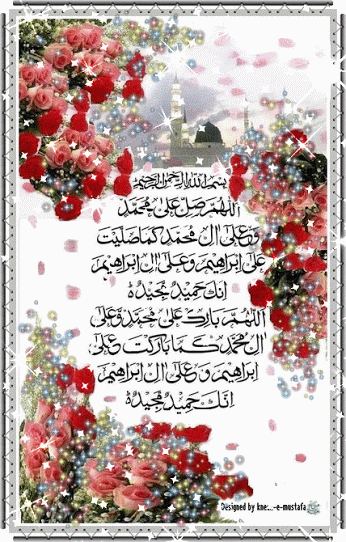 بسم الله الرحمن الرحيم
اللهم صل على محمد
وعلى ال محمد كما صليت
على ابراهيم وعلى ال ابراهيم
انك حميد مجيد
اللهم بارك على محمد وعلى
ال محمد كما باركت وعلى
ابراهيم وعلى ال ابراهيم
انك حميد مجيد
Designed by kne:..-e-mustafa